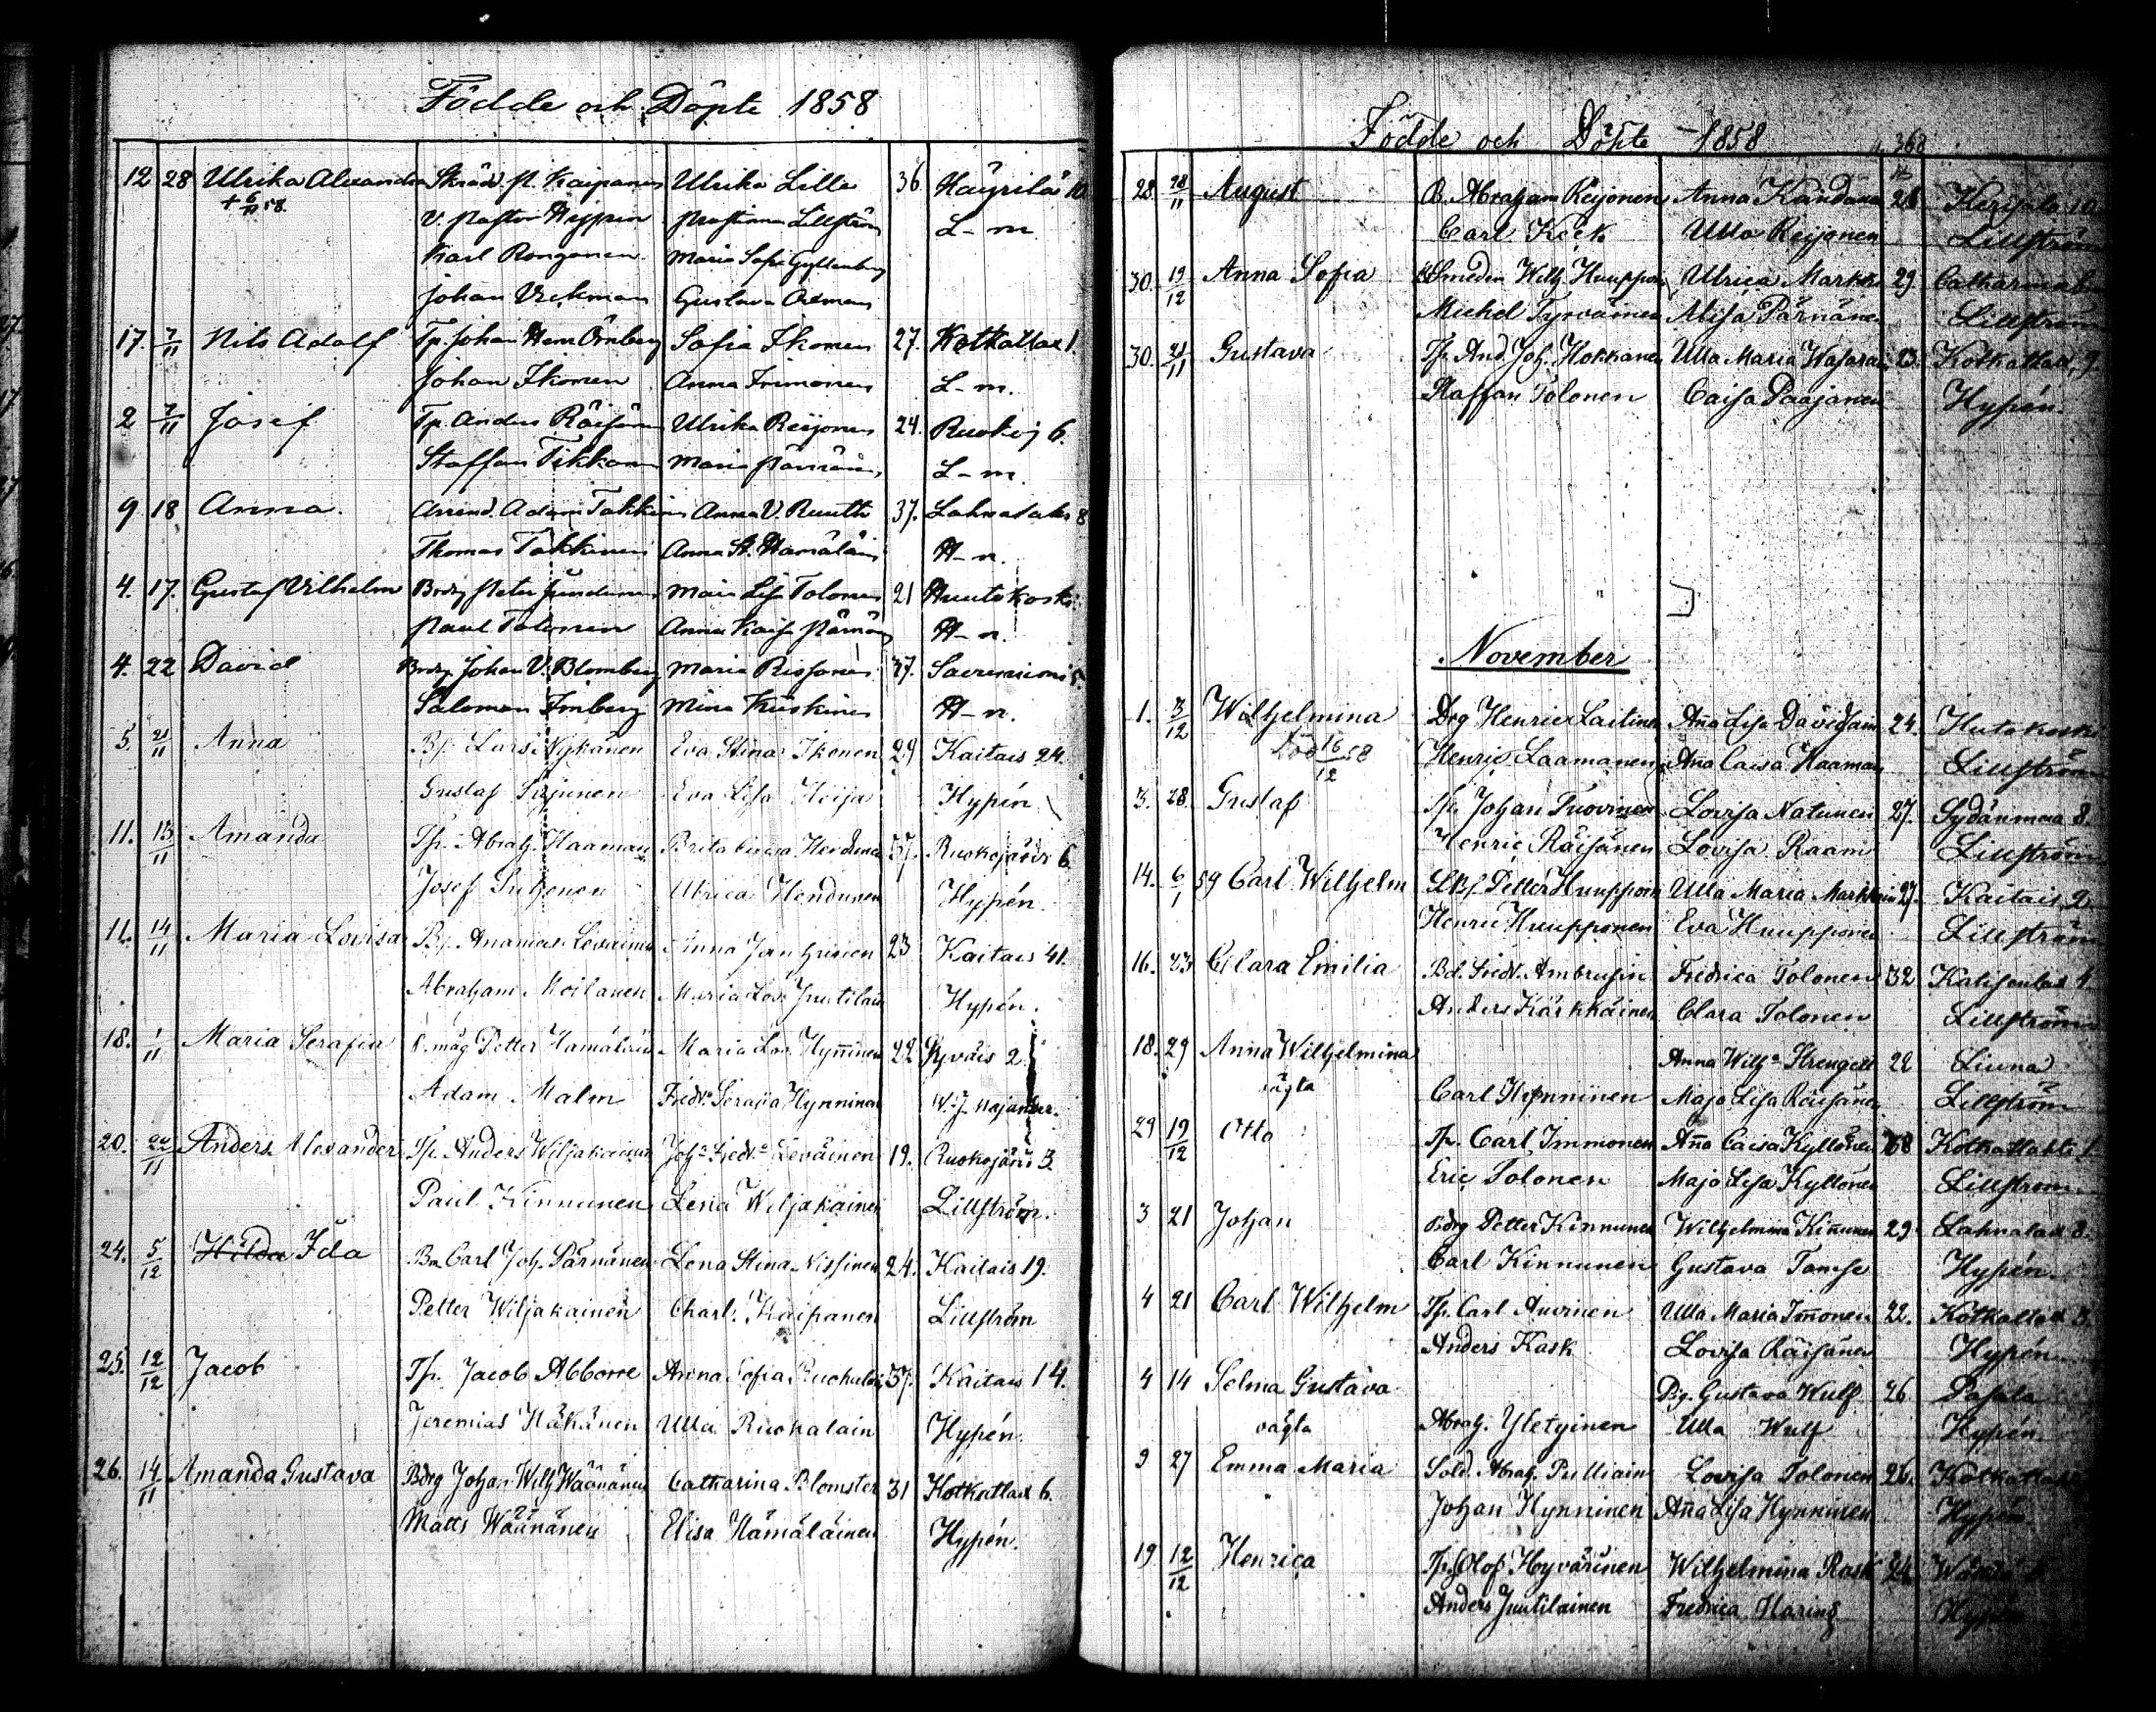 Födde och Döpte 1858
12 28 Ulrika Alexandra Skräd. P. Kaipanen Ulrika Lille 36 Häyrilä 10
+ 6/11 58. V. Pastor Hyppen Pastorinnan Lillström L-m
Karl Rongonen Maria Sofia Gyllenberg
Johan Vickman Gustava Ockman
17. 7/11 Nils Adolf Tp. Johan Henr Örnberg Sofia Ikonen 27. Kotkatlax 1
Johan Ikonen Anna Immonen L-m.
2 7/11 Josef Tp. Anders Räisänen Ulrika Reijonen 24. Ruokoj 6.
Staffan Tikkanen Maria Pärnänen L-m.
9 18 Anna. Arrend. Adam Takkinen Anna V. Ruuth 37. Lahnalaks 8
Thomas Takkinen Anna St. Hämäläin H-n.
4. 17. Gustaf Vilhelm Bdrg Peter Maria Lisa Tolonen 21 Huutokoski
Paul Tolonen Anna Kaisa Pärnän H-n.
4. 22 David Bdrg Johan V. Blomberg Maria Rissanen 37. Savuniemi 5.
Salomon Imberg Mina Kuiskinen H-n.
5. 21/11 Anna B. Lars Nykänen Eva Stina Ikonen 29 Kaitais 24.
Gustaf Eva Lisa Hypén
11. 13/11 Amanda Tp. Abrah. Haaman Brita Caisa 37. Ruokojärvi 6
Josef Ulrica Hendunen Hypén.
11. 14/11 Maria Lovisa B. Ananias Leväinen Anna Janhunen 23 Kaitais 41.
Abraham Moilanen Maria Lov. Juutilain Hypén.
18. 1/11 Maria Serafia Petter Hämäläin Maria Lov. Hynninen 22 Syväis 2
Adam Malm Fredr:a Serafia Hynninen W. J. Majander.
20. 22/11 Anders Alexander Tp. Anders Wiljakainen Joh:a Fredr:a Leväinen 19. Ruokojärvi 3
Paul Kinnunen Lena Wiljakainen Lillström.
24. 5/12 Hilda Ida Bn Carl Joh. Pärnänen Lena Stina Nissinen 24. Kaitais 19.
Petter Wiljakainen Charl. Kaipanen Lillström
25. 12/12 Jacob Tp. Jacob Abborre Anna Sofia Ruokalain 37. Kaitais 14.
Jeremias Häkänen Ulla Ruokalain Hypén.
26. 14/11 Amanda Gustava Bdrg Johan Wilh Wäänänen Catharina Blomster 31 Kotkatlax 6.
Matts Wäänänen Elisa Hämäläinen Hypén.
Födde och Döpte 1858 368
28 28/11 August B. Abraham Reijonen Anna 28 Herisalo 10
Carl Keck Ulla Reijonen Lillström
30. 19/12 Anna Sofia Smeden Wilh. Huupponen Ulrica Markka 29. Catharinal
Michel Tyrväinen A Lisa Pärnänen Lillström
30. 21/11 Gustava Tp. And. Joh. Hokkanen Ulla Maria Wasara 23. Kotkatlax 9
Staffan Tolonen Caisa Paajanen Hypén.
November
1. 13/12 Wilhelmina Drg Henric Laitinen Aña Lisa Davidsain 24. Hutokoski
död 16/12 58 Henric Laamanen Aña Caisa Haaman Lillström
3. 28. Gustaf Tp. Johan Tuovinen Lovisa Natunen 27. Sydänmaa 8.
Henric Räisänen Lovisa Raam Lillström
14. 6/1 59 Carl Wilhelm Petter Huupponen Ulla Maria Markkain 27. Kaitais 2
Henric Huupponen Eva Huupponen Lillström
16. 23 Clara Emilia Bd. Fredr. Ambrusin Fredrica Tolonen 32 Katisenlax 4.
Anders Kärkkäinen Clara Tolonen Lillström
18. 29 Anna Wilhelmina Anna Wilh:a Strengell 22 Liuna
oägta Carl Hynninen Maja Lisa Räisänen Lillström
29 19/12 Otto Tp. Carl Immonen Aña Caisa Kyllönen 38 Kotkatlahti 1
Eric Tolonen Maja Lisa Kyllönen Lillström
3 21 Johan Bdrg Petter Kinnunen Wilhelmina Kiñunen 29. Lahnalax 8.
Carl Kinnunen Gustava Hypén.
4 21 Carl Wilhelm Tp. Carl Auvinen Ulla Maria Imonen 22. Kotkatlax 3.
Anders Kask Lovisa Räisänen Hypén
4 14 Selma Gustava Pig. Gustava Wulf 26 Pasala
oägta Abrah. Yletyinen Ulla Wulf Hypén
9 27 Emma Maria Sold. Abrah. Pulliain Lovisa Tolonen 26. Kotkatlax
Johan Hynninen Aña Lisa Hynninen Hypén
19 12/12 Henrica Tp. Olof Hyvärinen Wilhelmina Rask 24
Anders Juutilainen Fredrica Haring Hypén